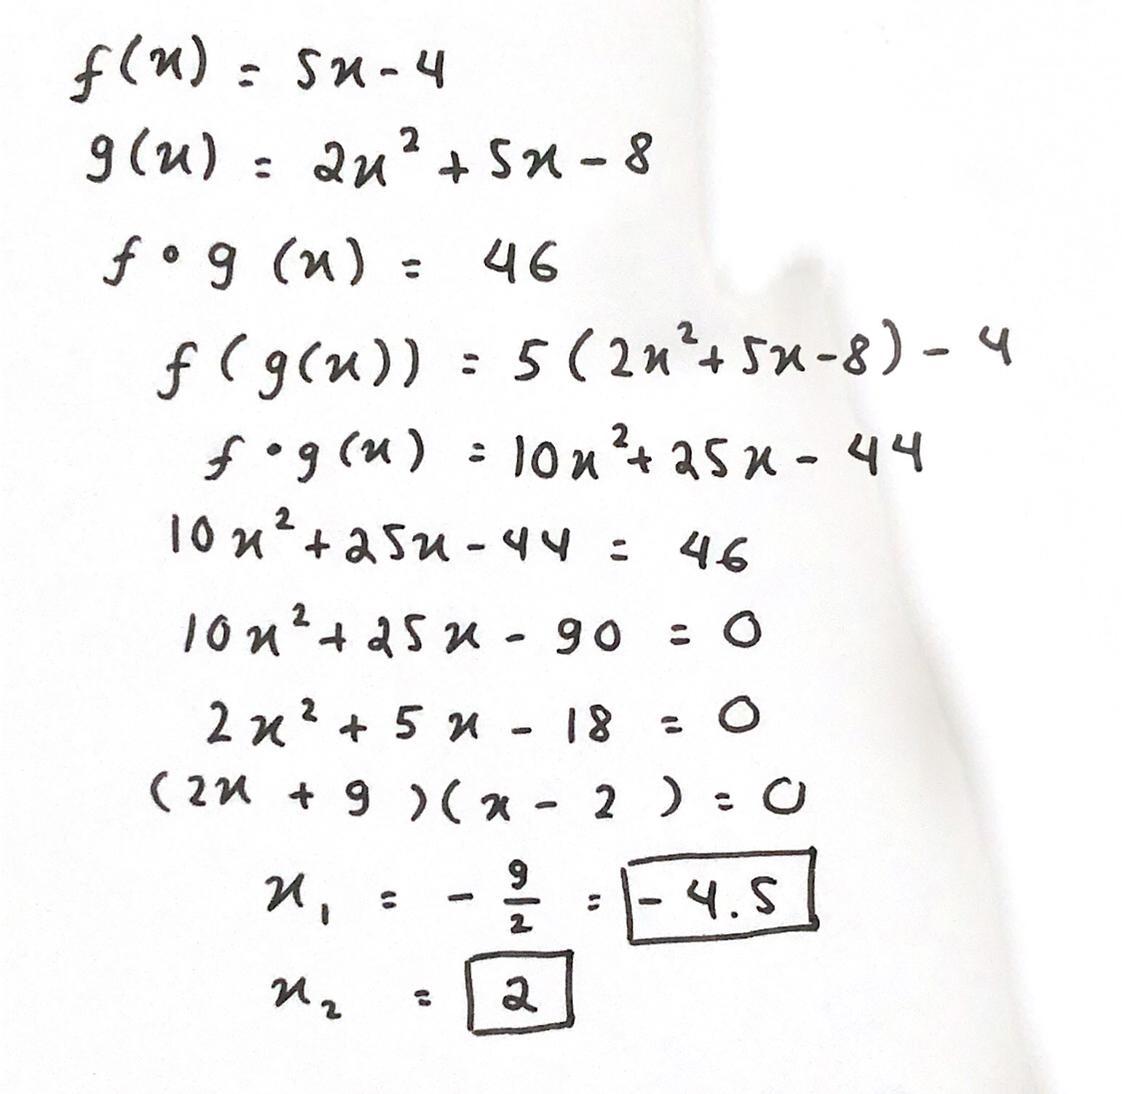 f(x) = 5x - 4
g(x) = 2x² + 5x - 8
f∘g (x) = 46
f(g(x)) = 5(2x² + 5x - 8) - 4
f∘g(x) = 10x² + 25x - 44
10x² + 25x - 44 = 46
10x² + 25x - 90 = 0
2x² + 5x - 18 = 0
(2x + 9)(x - 2) = 0
x₁ = - 9/2 = - 4.5
x₂ = 2